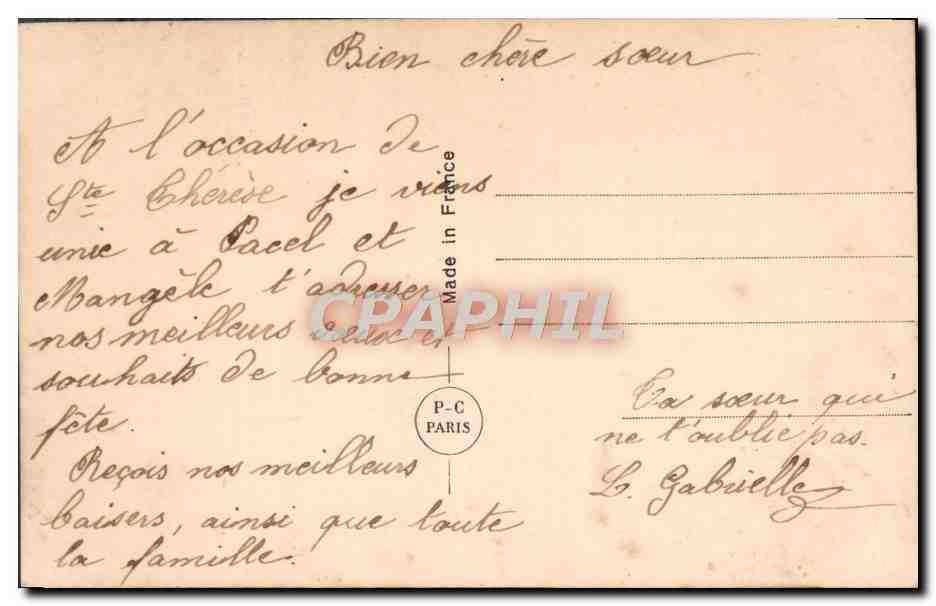 Bien chère sœur
A l'occasion de
Ste Thérèse je viens
unie à Pacel et
Mangèle t'adresser
nos meilleurs vœux et
souhaits de bonne
fête.
Reçois nos meilleurs
baisers, ainsi que toute
la famille.
Made in France
P-C
PARIS
CPAPHIL
Ta sœur qui
ne t'oublie pas.
L. Gabrielle